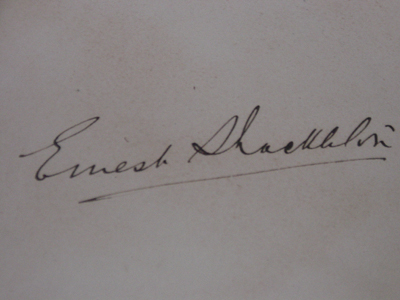 Ernest Shackleton